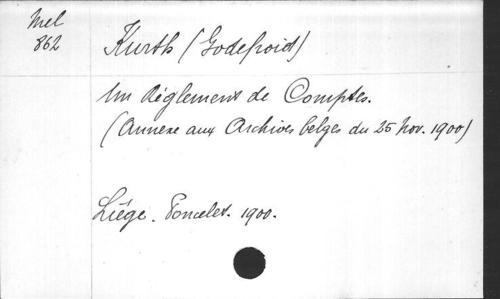 Mel
862
Kurth (Godefroid)
Un Réglement de Comptes.
(Annexe aux Archives belges du 25 Nov. 1900)
Liége. Poncelet. 1900.